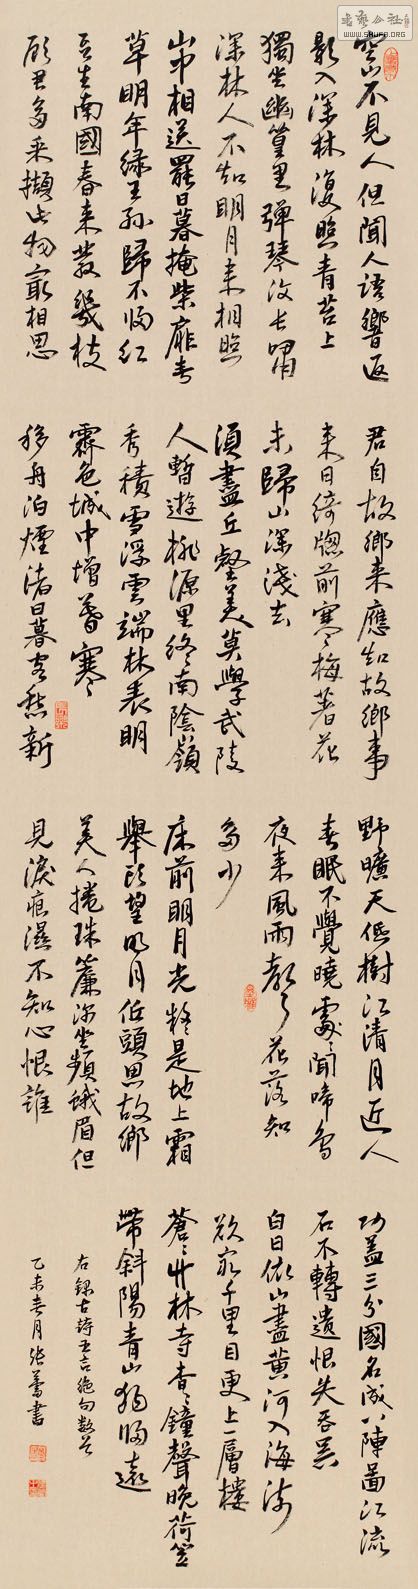 書藝公社
WWW.SHUFA.ORG
空山不見人但聞人語響返
影入深林復照青苔上
獨坐幽篁里彈琴復長嘯
深林人不知明月來相照
山中相送罷日暮掩柴扉春
草明年綠王孫歸不歸紅
豆生南國春來發幾枝
願君多采擷此物最相思
君自故鄉來應知故鄉事
來日綺窗前寒梅著花
未歸山深淺去
須盡丘壑美莫學武陵
人暫遊桃源里終南陰嶺
秀積雪浮雲端林表明
霽色城中增暮寒
移舟泊煙渚日暮客愁新
野曠天低樹江清月近人
春眠不覺曉處〻聞啼鳥
夜來風雨聲花落知
多少
床前明月光疑是地上霜
舉頭望明月低頭思故鄉
美人捲珠簾深坐顰蛾眉但
見淚痕濕不知心恨誰
功蓋三分國名成八陣圖江流
石不轉遺恨失吞吳
白日依山盡黃河入海流
欲窮千里目更上一層樓
蒼〻竹林寺杳〻鐘聲晚荷笠
帶斜陽青山獨歸遠
右錄古詩五言絕句數首
乙未春月張書